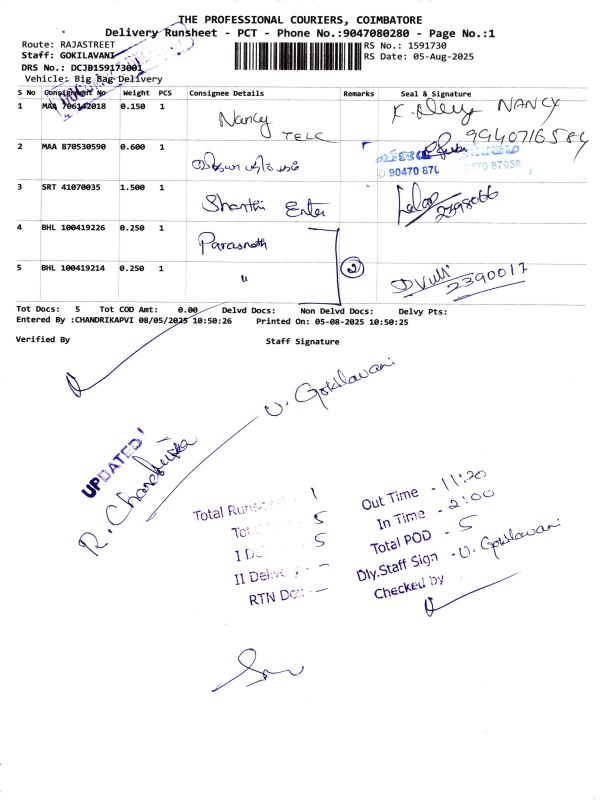 THE PROFESSIONAL COURIERS, COIMBATORE
Delivery Runsheet - PCT - Phone No.:9047080280 - Page No.:1
Route: RAJASTREET
RS No.: 1591730
Staff: GOKILAVANI
RS Date: 05-Aug-2025
DRS No.: DCJB159173001
Vehicle: Big Bag Delivery
S No Consignment No Weight PCS Consignee Details Remarks Seal & Signature
1 MAA 706142018 0.150 1 Nancy TELC NANCY
9940716584
2 MAA 870530590 0.600 1
90470 87058
3 SRT 41070035 1.500 1 Shanthi Enter 2398066
4 BHL 100419226 0.250 1 Parasnath
5 BHL 100419214 0.250 1 " 2 2390017
Tot Docs: 5 Tot COD Amt: 0.00 Delvd Docs: Non Delvd Docs: Delvy Pts:
Entered By :CHANDRIKAPVI 08/05/2025 10:50:26 Printed On: 05-08-2025 10:50:25
Verified By Staff Signature
U. Gokilavani
UPDATED!
R. Chandrika
Total 1
5
5
II -
RTN -
Out Time - 11:20
In Time - 2:00
Total POD - 5
Dly.Staff Sign - U. Gokilavani
Checked by